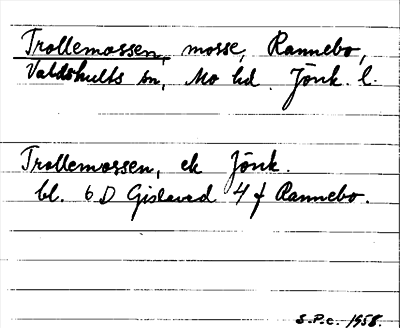 Trollemossen, mosse, Rannebo,
Valdshults sn, Mo hd. Jönk. l.
Trollemossen, ek Jönk.
bl. 6 D Gislaved 4 f Rannebo.
S.P.c. 1958.